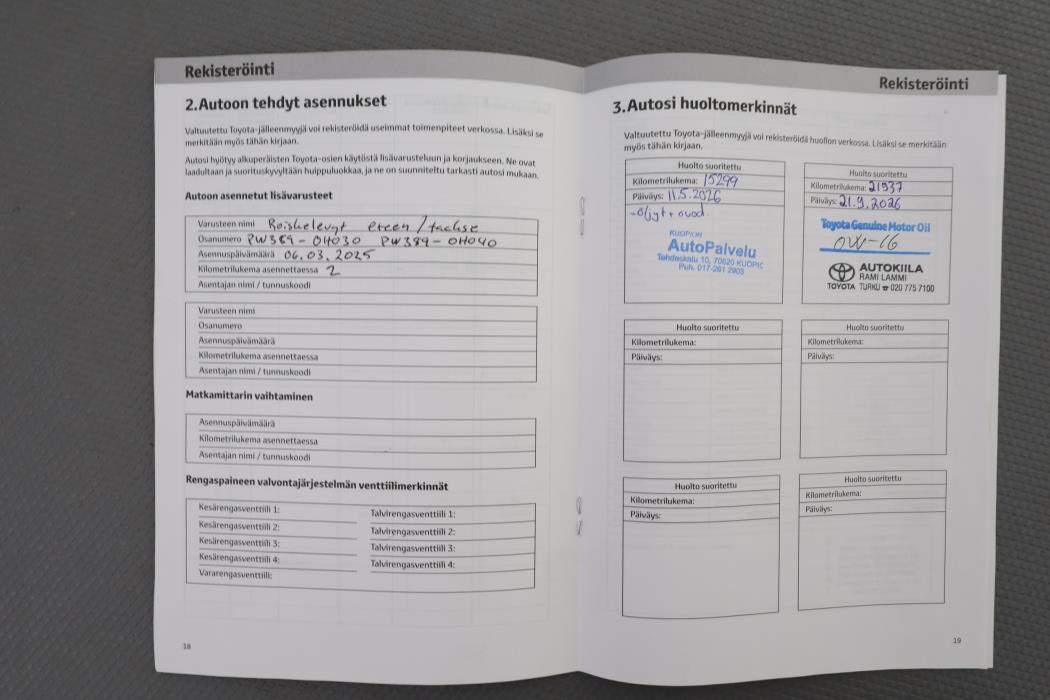 Rekisteröinti
2.Autoon tehdyt asennukset
Valtuutettu Toyota-jälleenmyyjä voi rekisteröidä useimmat toimenpiteet verkossa. Lisäksi se
merkitään myös tähän kirjaan.
Autosi hyötyy alkuperäisten Toyota-osien käytöstä lisävarusteluun ja korjaukseen. Ne ovat
laadultaan ja suorituskyvyltään huippuluokkaa, ja ne on suunniteltu tarkasti autosi mukaan.
Autoon asennetut lisävarusteet
Varusteen nimi Roiskelevyt eteen/taakse
Osanumero PW389-0H030 PW389-0H040
Asennuspäivämäärä 06.03.2025
Kilometrilukema asennettaessa 2
Asentajan nimi / tunnuskoodi
Varusteen nimi
Osanumero
Asennuspäivämäärä
Kilometrilukema asennettaessa
Asentajan nimi / tunnuskoodi
Matkamittarin vaihtaminen
Asennuspäivämäärä
Kilometrilukema asennettaessa
Asentajan nimi / tunnuskoodi
Rengaspaineen valvontajärjestelmän venttiilimerkinnät
Kesärengasventtiili 1: Talvirengasventtiili 1:
Kesärengasventtiili 2: Talvirengasventtiili 2:
Kesärengasventtiili 3: Talvirengasventtiili 3:
Kesärengasventtiili 4: Talvirengasventtiili 4:
Vararengasventtiili:
18
Rekisteröinti
3.Autosi huoltomerkinnät
Valtuutettu Toyota-jälleenmyyjä voi rekisteröidä huollon verkossa. Lisäksi se merkitään
myös tähän kirjaan.
Huolto suoritettu
Kilometrilukema: 15299
Päiväys: 11.5.2026
-öljyt + suod.
KUOPION
AutoPalvelu
Tehdaskatu 10, 70620 KUOPIO
Puh. 017-261 2903
Huolto suoritettu
Kilometrilukema: 21937
Päiväys: 21.9.2026
Toyota Genuine Motor Oil
0W-16
AUTOKIILA
RAMI LAMMI
TOYOTA TURKU ☎ 020 775 7100
Huolto suoritettu
Kilometrilukema:
Päiväys:
Huolto suoritettu
Kilometrilukema:
Päiväys:
Huolto suoritettu
Kilometrilukema:
Päiväys:
Huolto suoritettu
Kilometrilukema:
Päiväys:
19